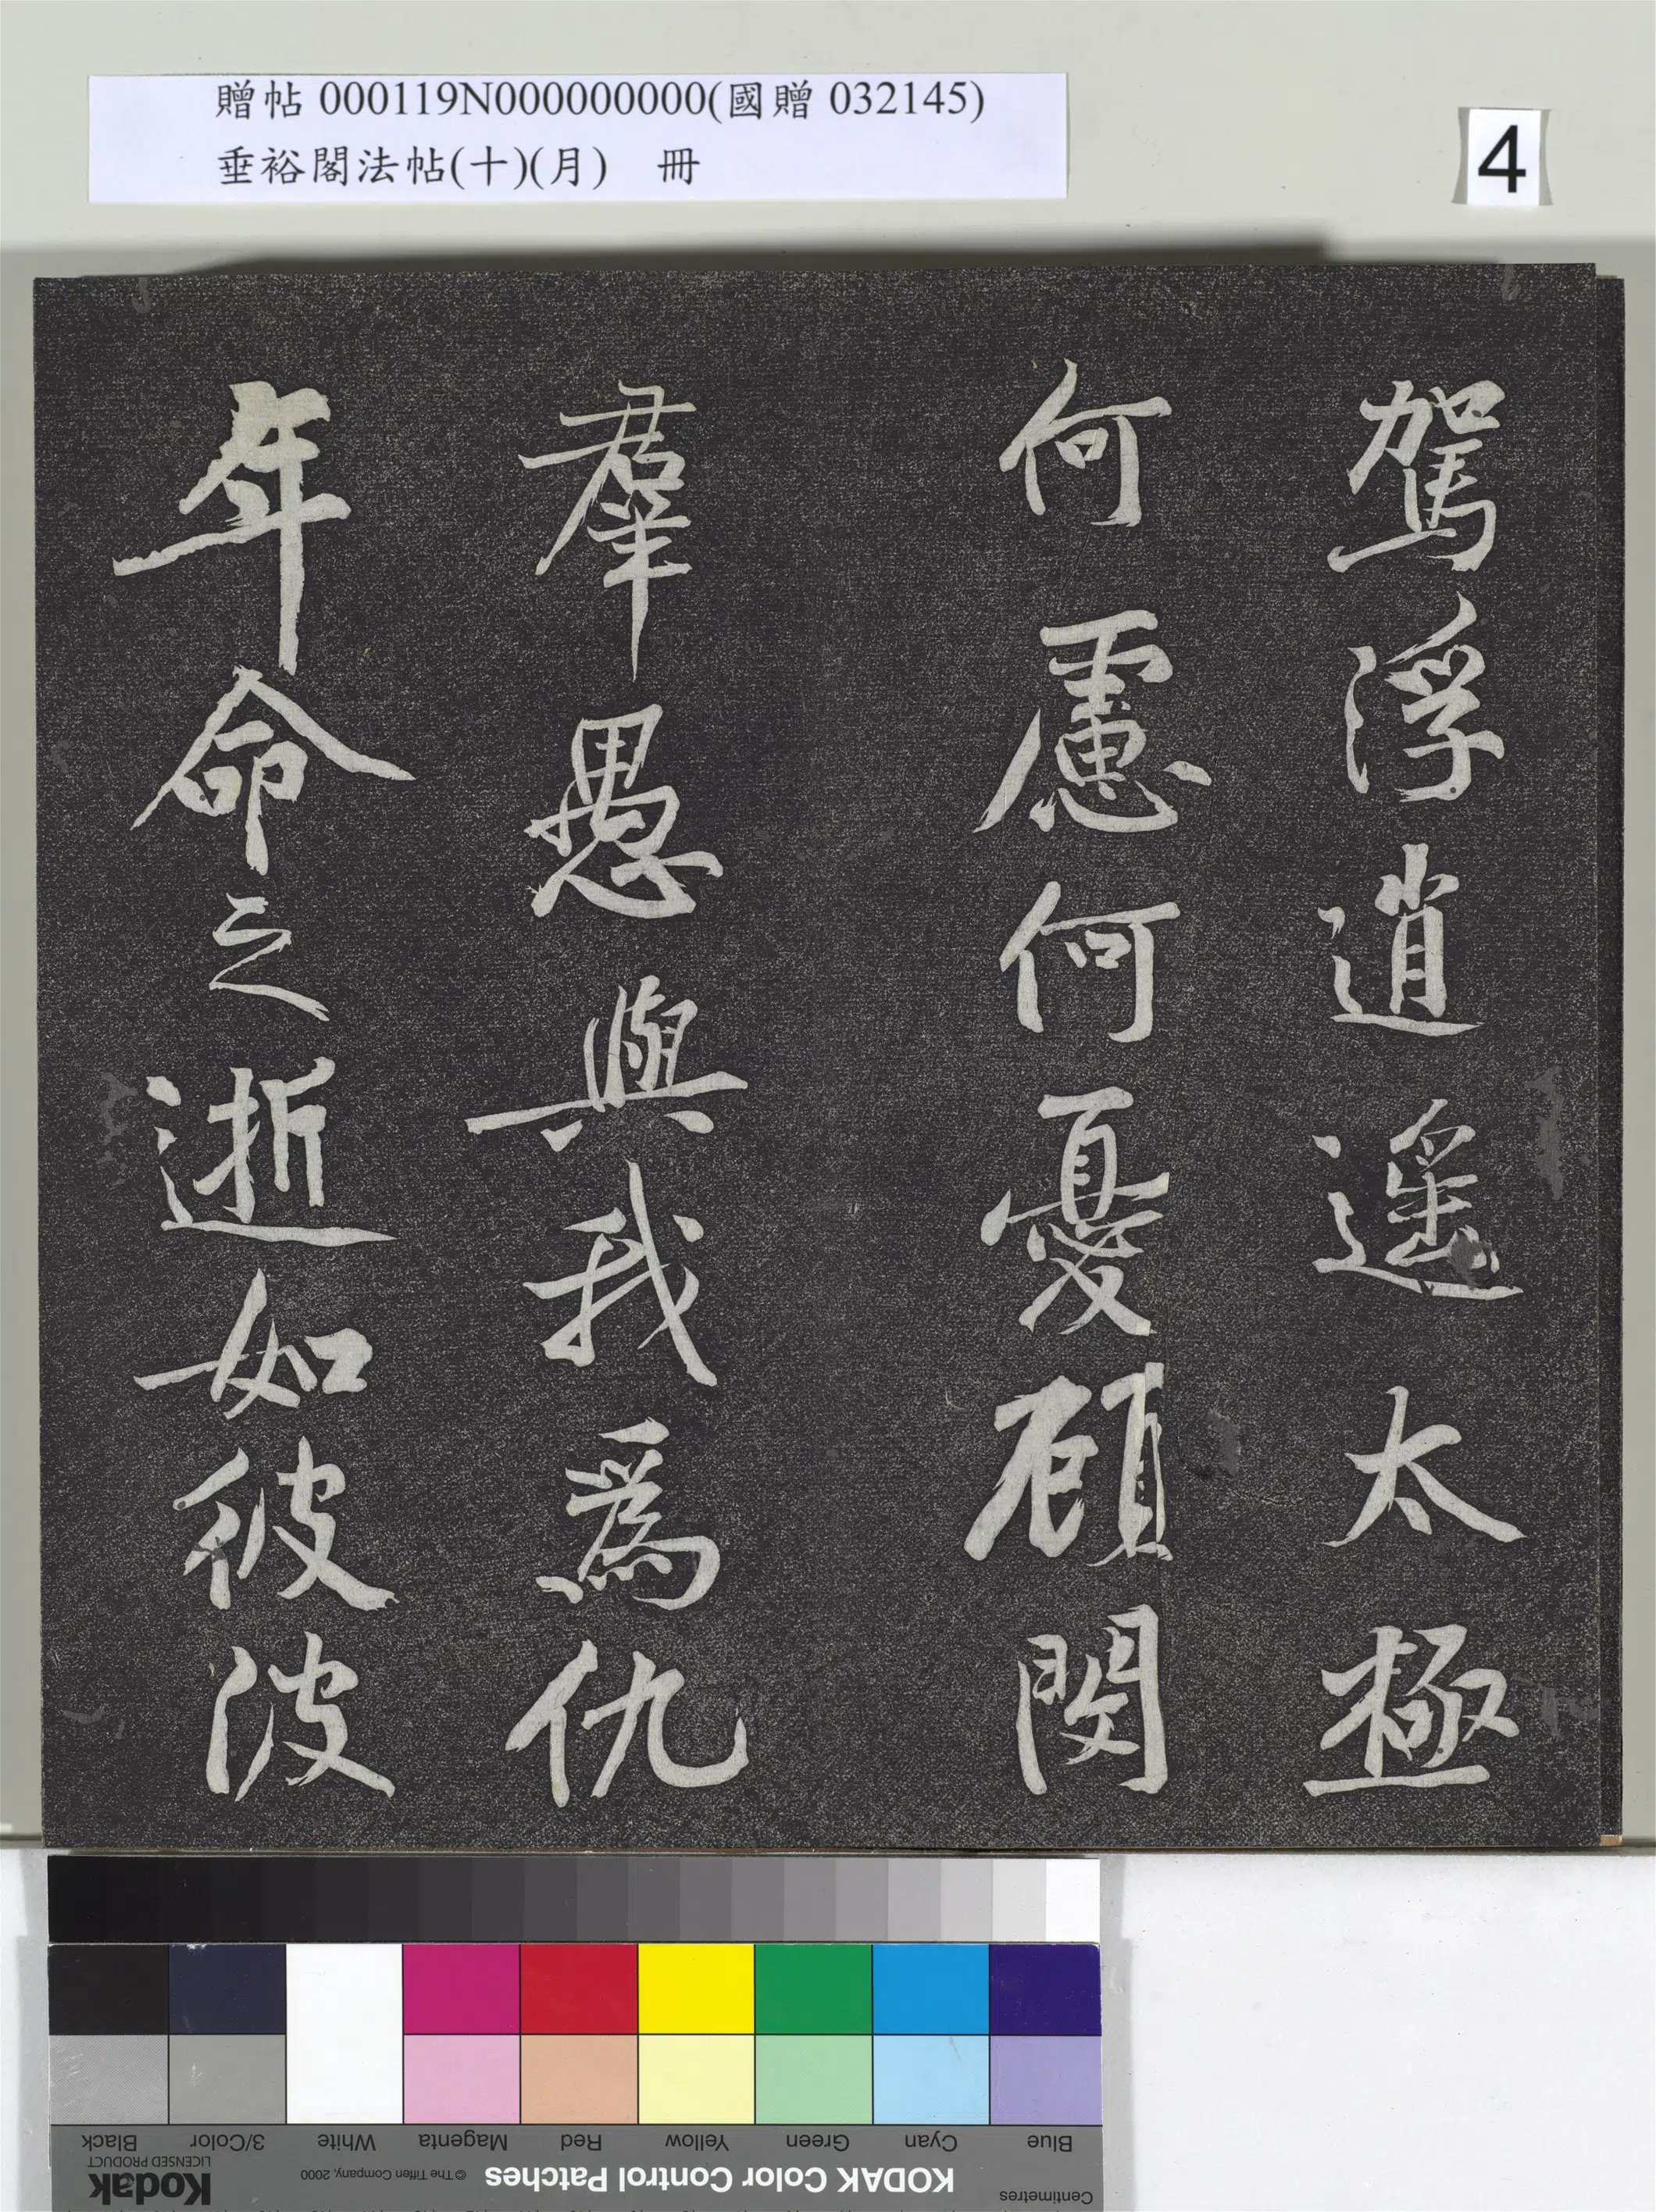 贈帖 000119N000000000(國贈 032145)
垂裕閣法帖(十)(月) 冊
4
駕浮逍遙太極
何慮何憂顧閔
羣愚與我爲仇
年命之逝如彼波
Black 3/Color White Magenta Red Yellow Green Cyan Blue
Kodak
LICENSED PRODUCT
© The Tiffen Company, 2000
KODAK Color Control Patches
Centimetres